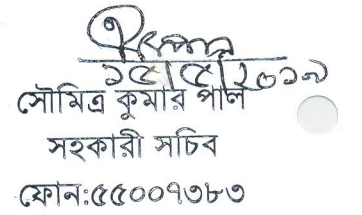 ১৫/৫/২০১৭
সৌমিত্র কুমার পাল
সহকারী সচিব
ফোন:৫৫০০৭৩৮৩